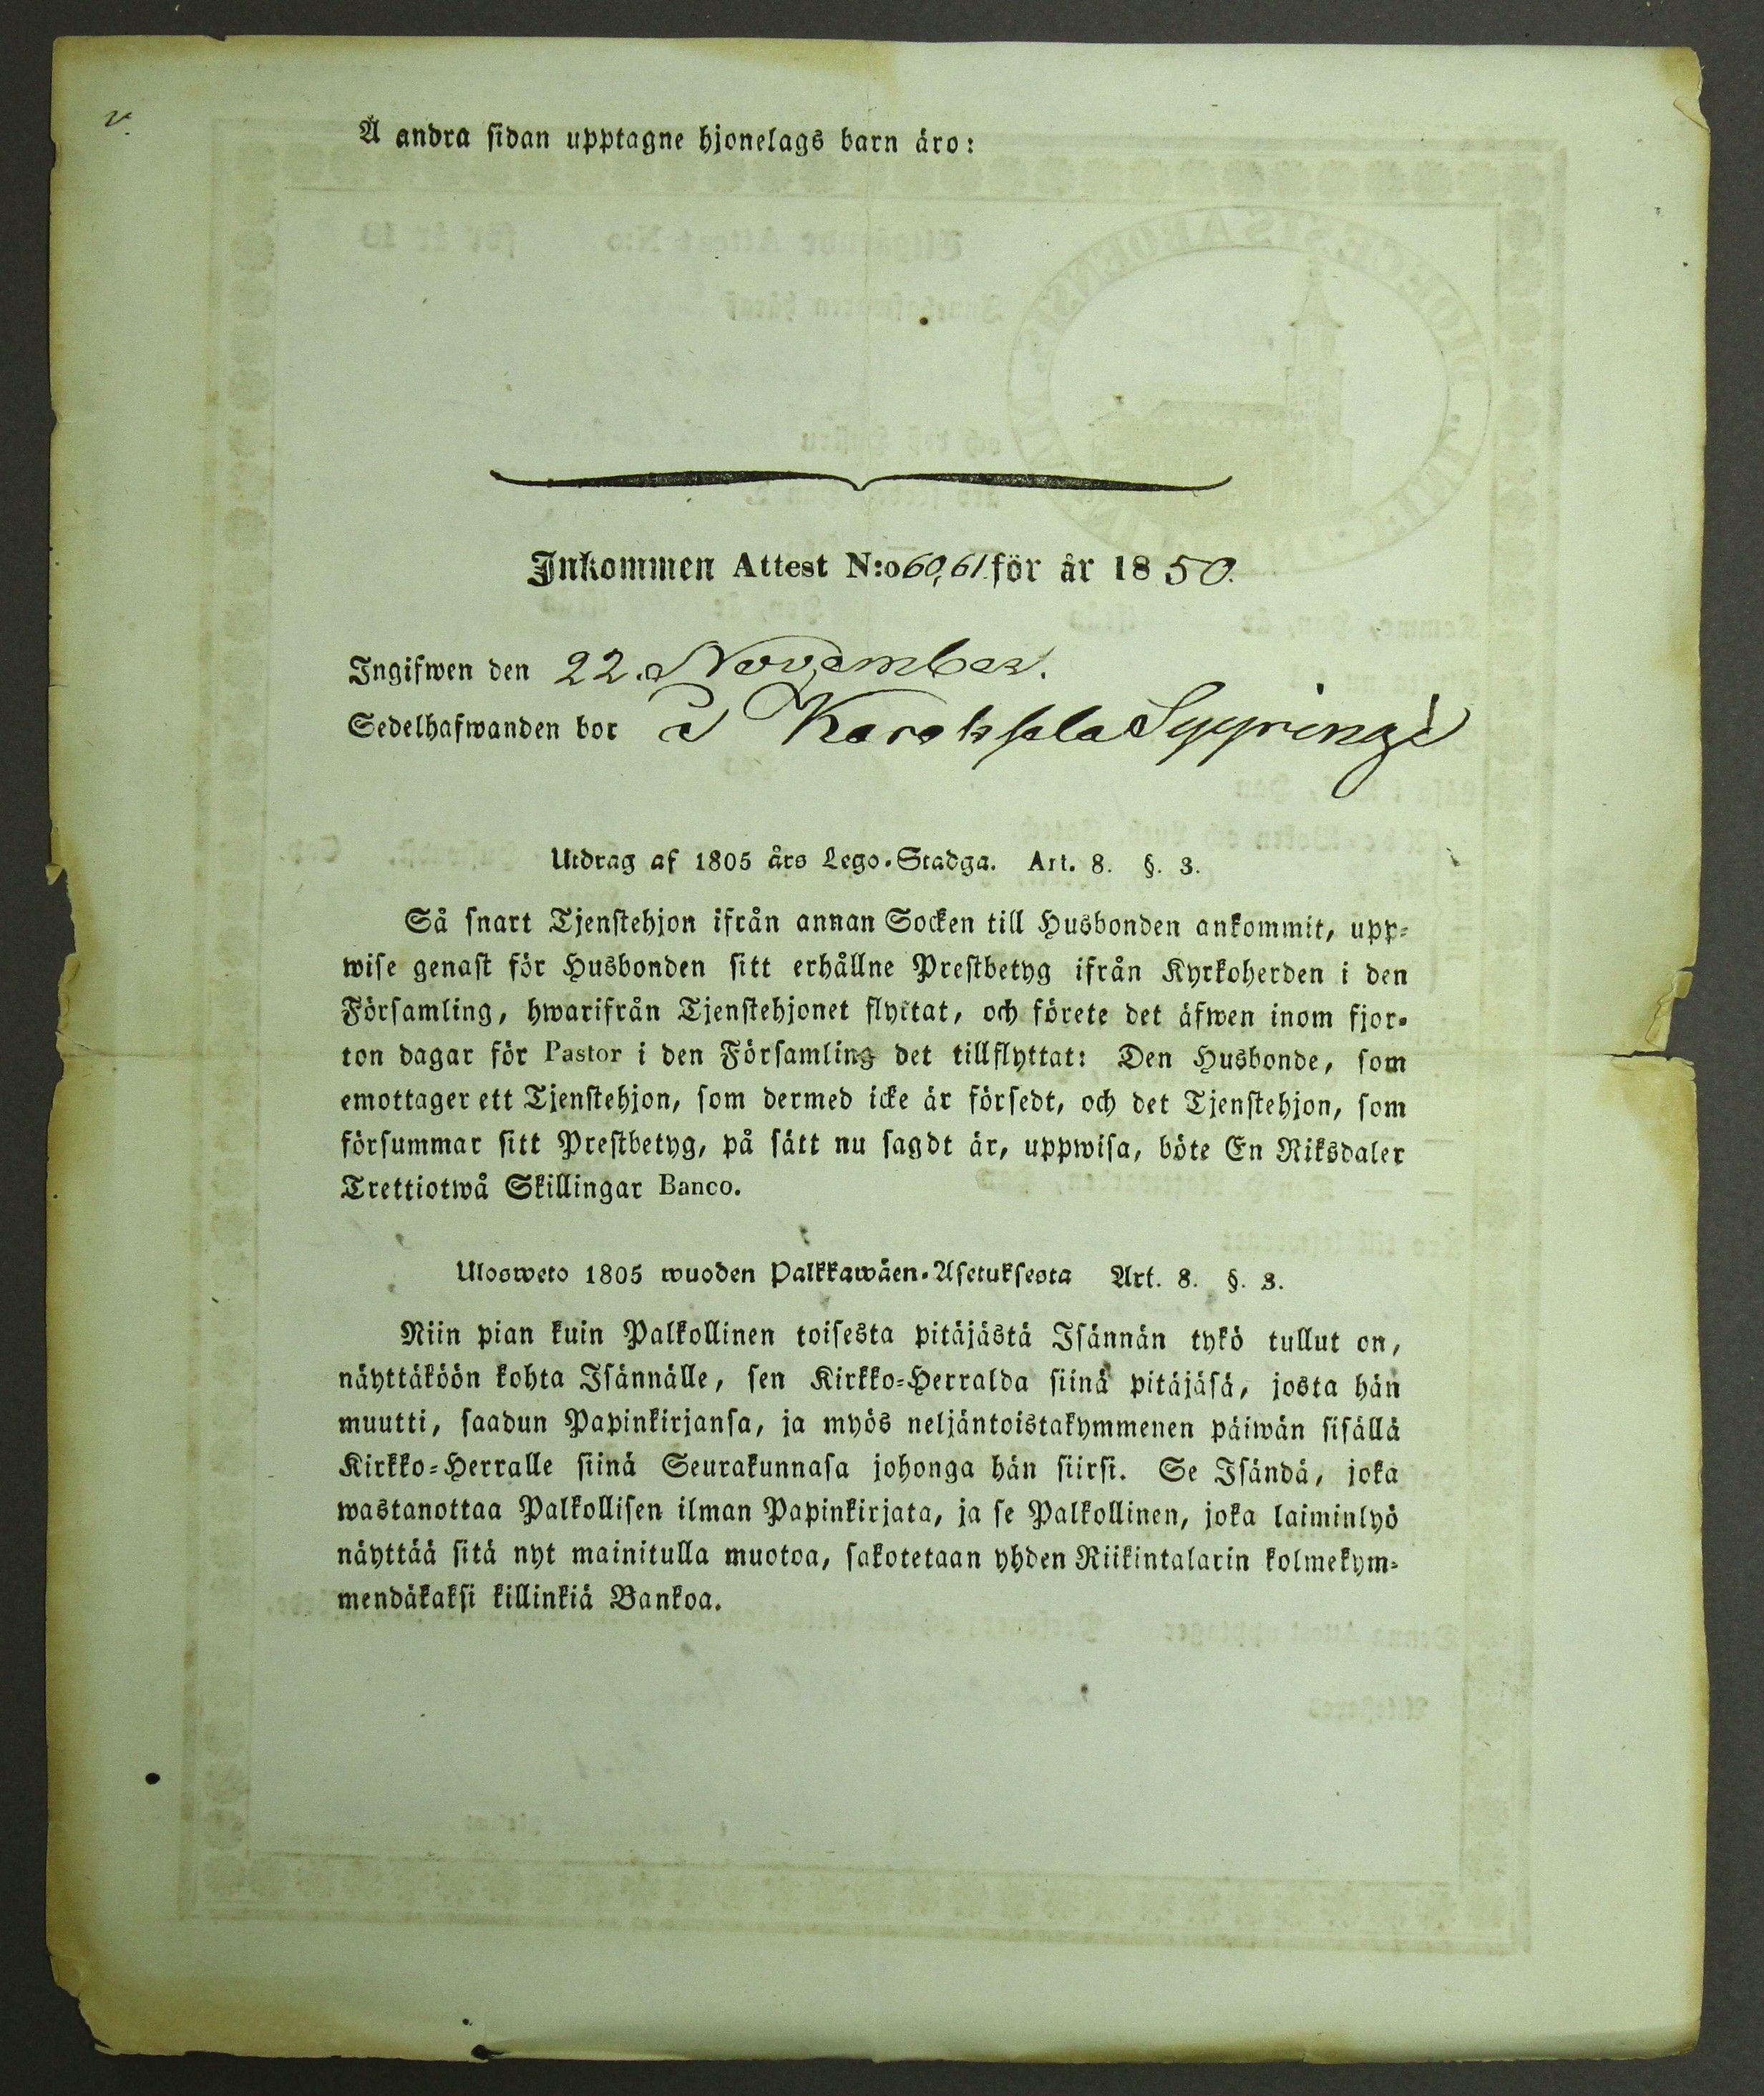 Å andra sidan upptagne hjonelags barn äro:
Inkommen Attest N:o 60, 61. för år 1850.
Ingifwen den 22. November.
Sedelhafwanden bor i Karohsela Syyringi
Utdrag af 1805 års Lego-Stadga. Art. 8. §. 3.
Så snart Tjenstehjon ifrån annan Socken till Husbonden ankommit, upp-
wise genast för Husbonden sitt erhållne Prestbetyg ifrån Kyrkoherden i den
Församling, hwarifrån Tjenstehjonet flyttat, och förete det äfwen inom fjor-
ton dagar för Pastor i den Församling det tillflyttat: Den Husbonde, som
emottager ett Tjenstehjon, som dermed icke är försedt, och det Tjenstehjon, som
försummar sitt Prestbetyg, på sätt nu sagdt är, uppwisa, böte En Riksdaler
Trettiotwå Skillingar Banco.
Ulosweto 1805 wuoden Palkkawäen-Asetuksesta Art. 8. §. 3.
Niin pian kuin Palkollinen toisesta pitäjästä Isännän tykö tullut on,
näyttäköön kohta Isännälle, sen Kirkko-Herralda siinä pitäjäsä, josta hän
muutti, saadun Papinkirjansa, ja myös neljäntoistakymmenen päiwän sisällä
Kirkko-Herralle siinä Seurakunnasa johonga hän siirsi. Se Isändä, joka
wastanottaa Palkollisen ilman Papinkirjata, ja se Palkollinen, joka laiminlyö
näyttää sitä nyt mainitulla muotoa, sakotetaan yhden Riikintalarin kolmekym-
mendäkaksi killinkiä Bankoa.